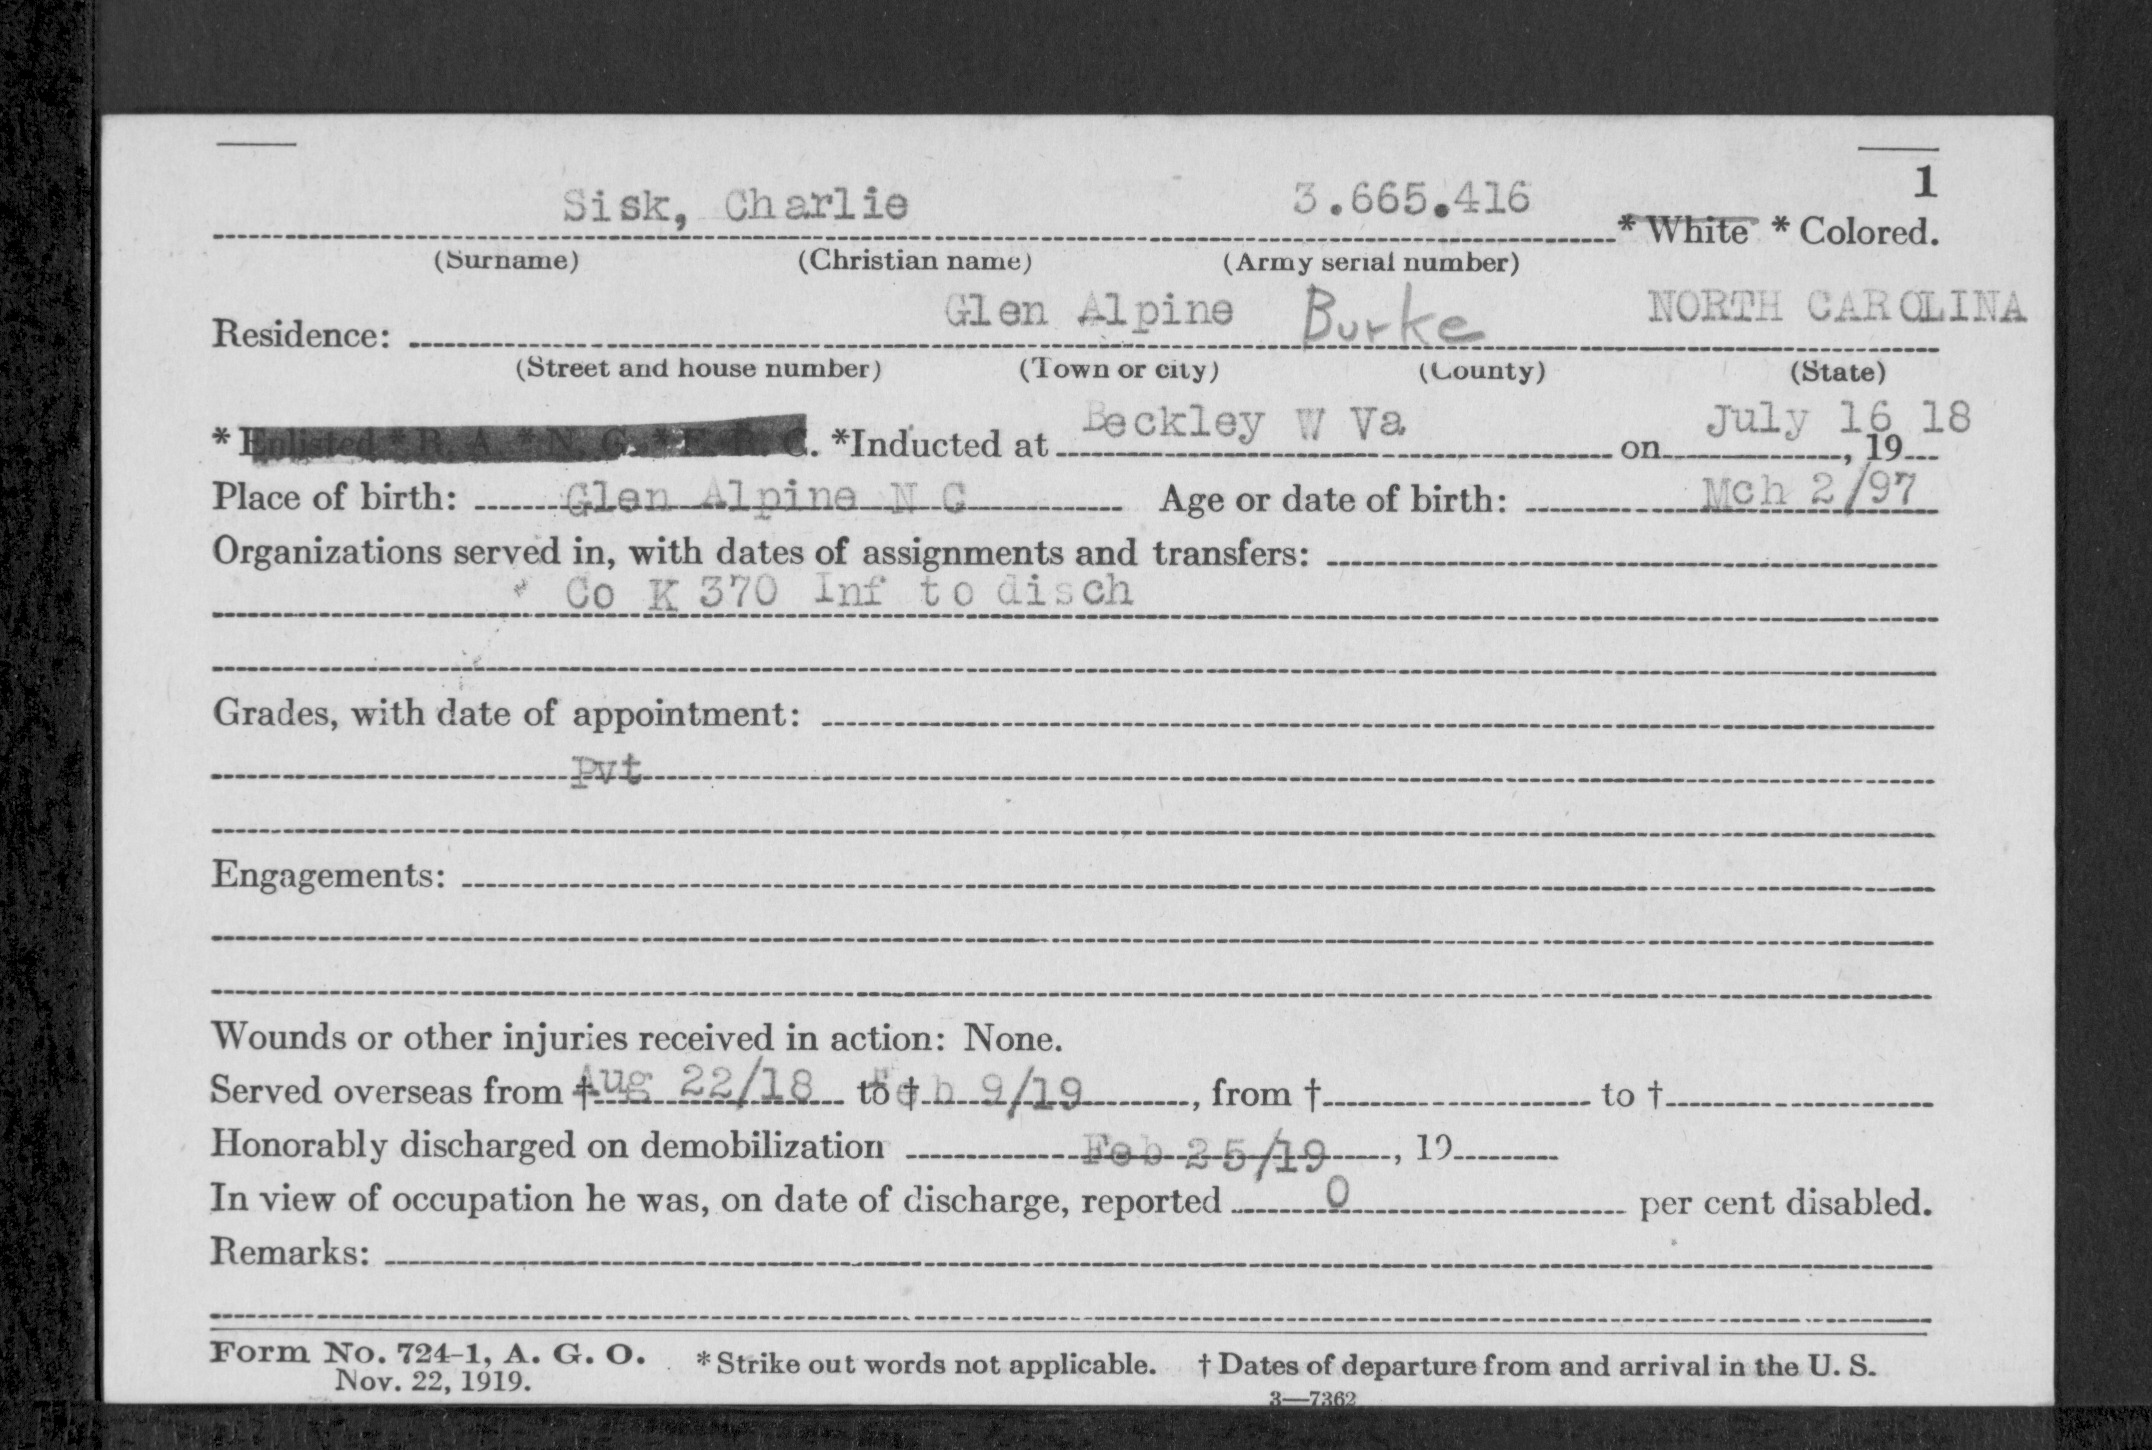 1
Sisk, Charlie 3.665.416 * White * Colored.
(Surname) (Christian name) (Army serial number)
Residence: Glen Alpine Burke NORTH CAROLINA
(Street and house number) (Town or city) (County) (State)
* Enlisted * R. A. * N. G. * E. R. C. *Inducted at Beckley W Va on July 16, 1918
Place of birth: Glen Alpine N C Age or date of birth: Mch 2/97
Organizations served in, with dates of assignments and transfers:
Co K 370 Inf to disch
Grades, with date of appointment:
Pvt
Engagements:
Wounds or other injuries received in action: None.
Served overseas from † Aug 22/18 to † Feb 9/19, from † to †
Honorably discharged on demobilization Feb 25/19, 19
In view of occupation he was, on date of discharge, reported 0 per cent disabled.
Remarks:
Form No. 724-1, A. G. O. * Strike out words not applicable. † Dates of departure from and arrival in the U. S.
Nov. 22, 1919.
3—7362